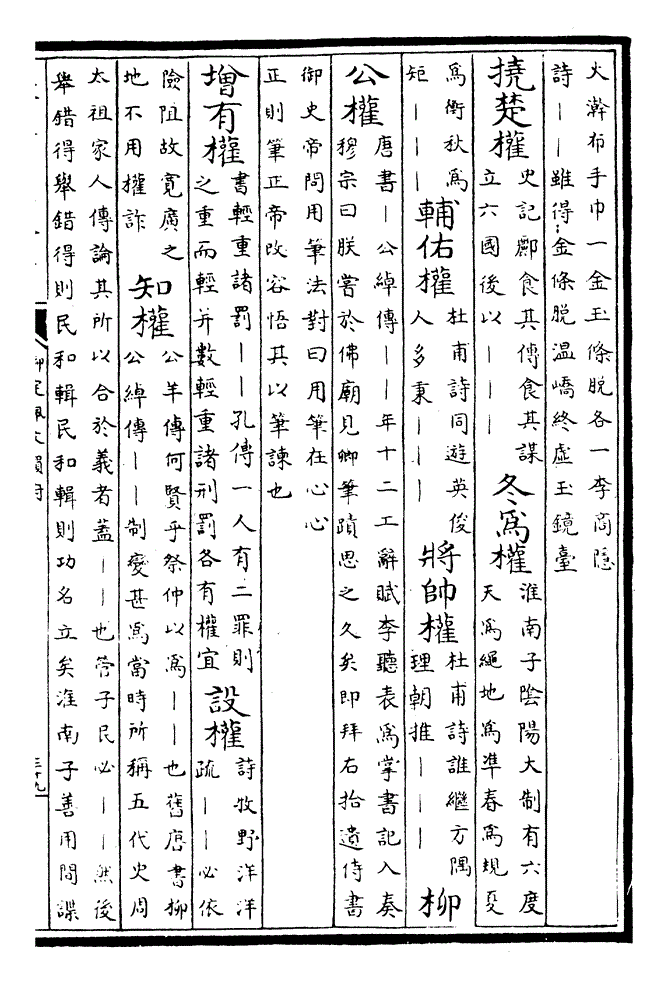 火澣布手巾一金玉條脫各一李商隱
詩丨丨雖得金條脫溫嶠終虛玉鏡臺
撓楚權
史記酈食其傳食其謀
立六國後以丨丨丨
冬爲權
淮南子陰陽大制有六度
天爲繩地爲準春爲規夏
爲衡秋爲
矩丨丨丨
輔佑權
杜甫詩同遊英俊
人多秉丨丨丨
將帥權
杜甫詩誰繼方隅
理朝推丨丨丨
柳
公權
唐書丨公綽傳丨丨年十二工辭賦李聽表爲掌書記入奏
穆宗曰朕嘗於佛廟見卿筆蹟思之久矣即拜右拾遺侍書
御史帝問用筆法對曰用筆在心心
正則筆正帝改容悟其以筆諫也
增有權
書輕重諸罰丨丨孔傳一人有二罪則
之重而輕并數輕重諸刑罰各有權宜
設權
詩牧野洋洋
疏丨丨必依
險阻故寬廣之
地不用權詐
知權
公羊傳何賢乎祭仲以爲丨丨也舊唐書柳
公綽傳丨丨制變甚爲當時所稱五代史周
太祖家人傳論其所以合於義者蓋丨丨也管子民必丨丨然後
舉錯得舉錯得則民和輯民和輯則功名立矣淮南子善用間諜
御定佩文韻府
三十九